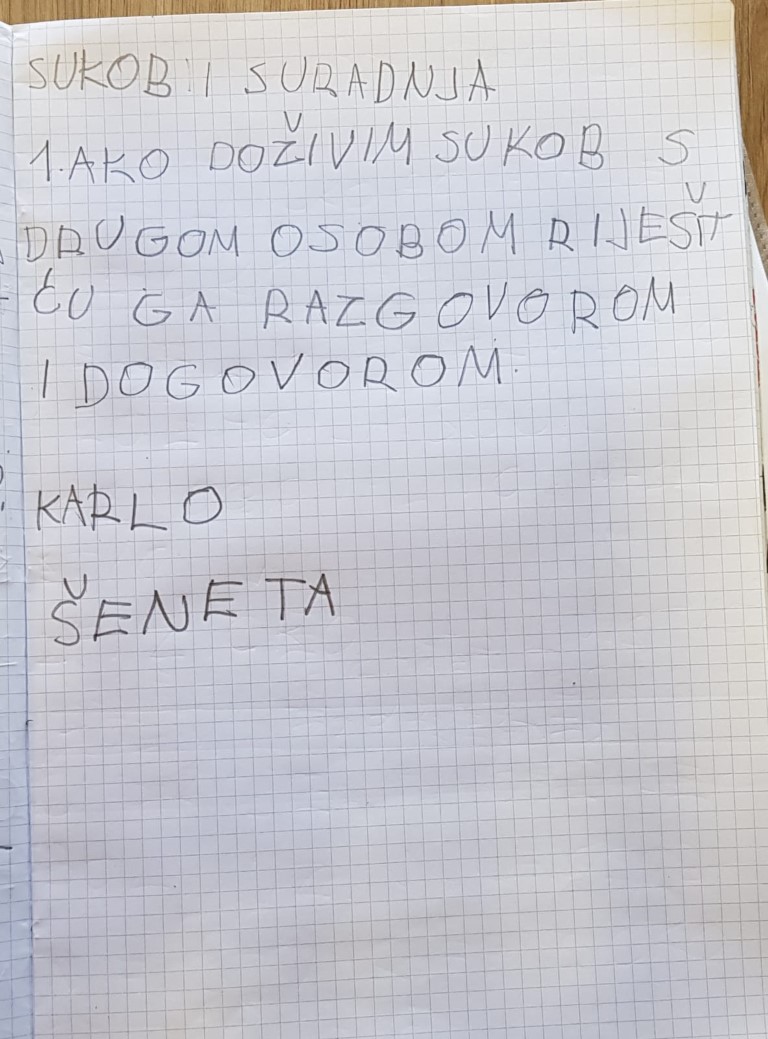 SUKOB I SURADNJA
1. AKO DOŽIVIM SUKOB S
DRUGOM OSOBOM RIJEŠIT
ĆU GA RAZGOVOROM
I DOGOVOROM.
KARLO
ŠENETA